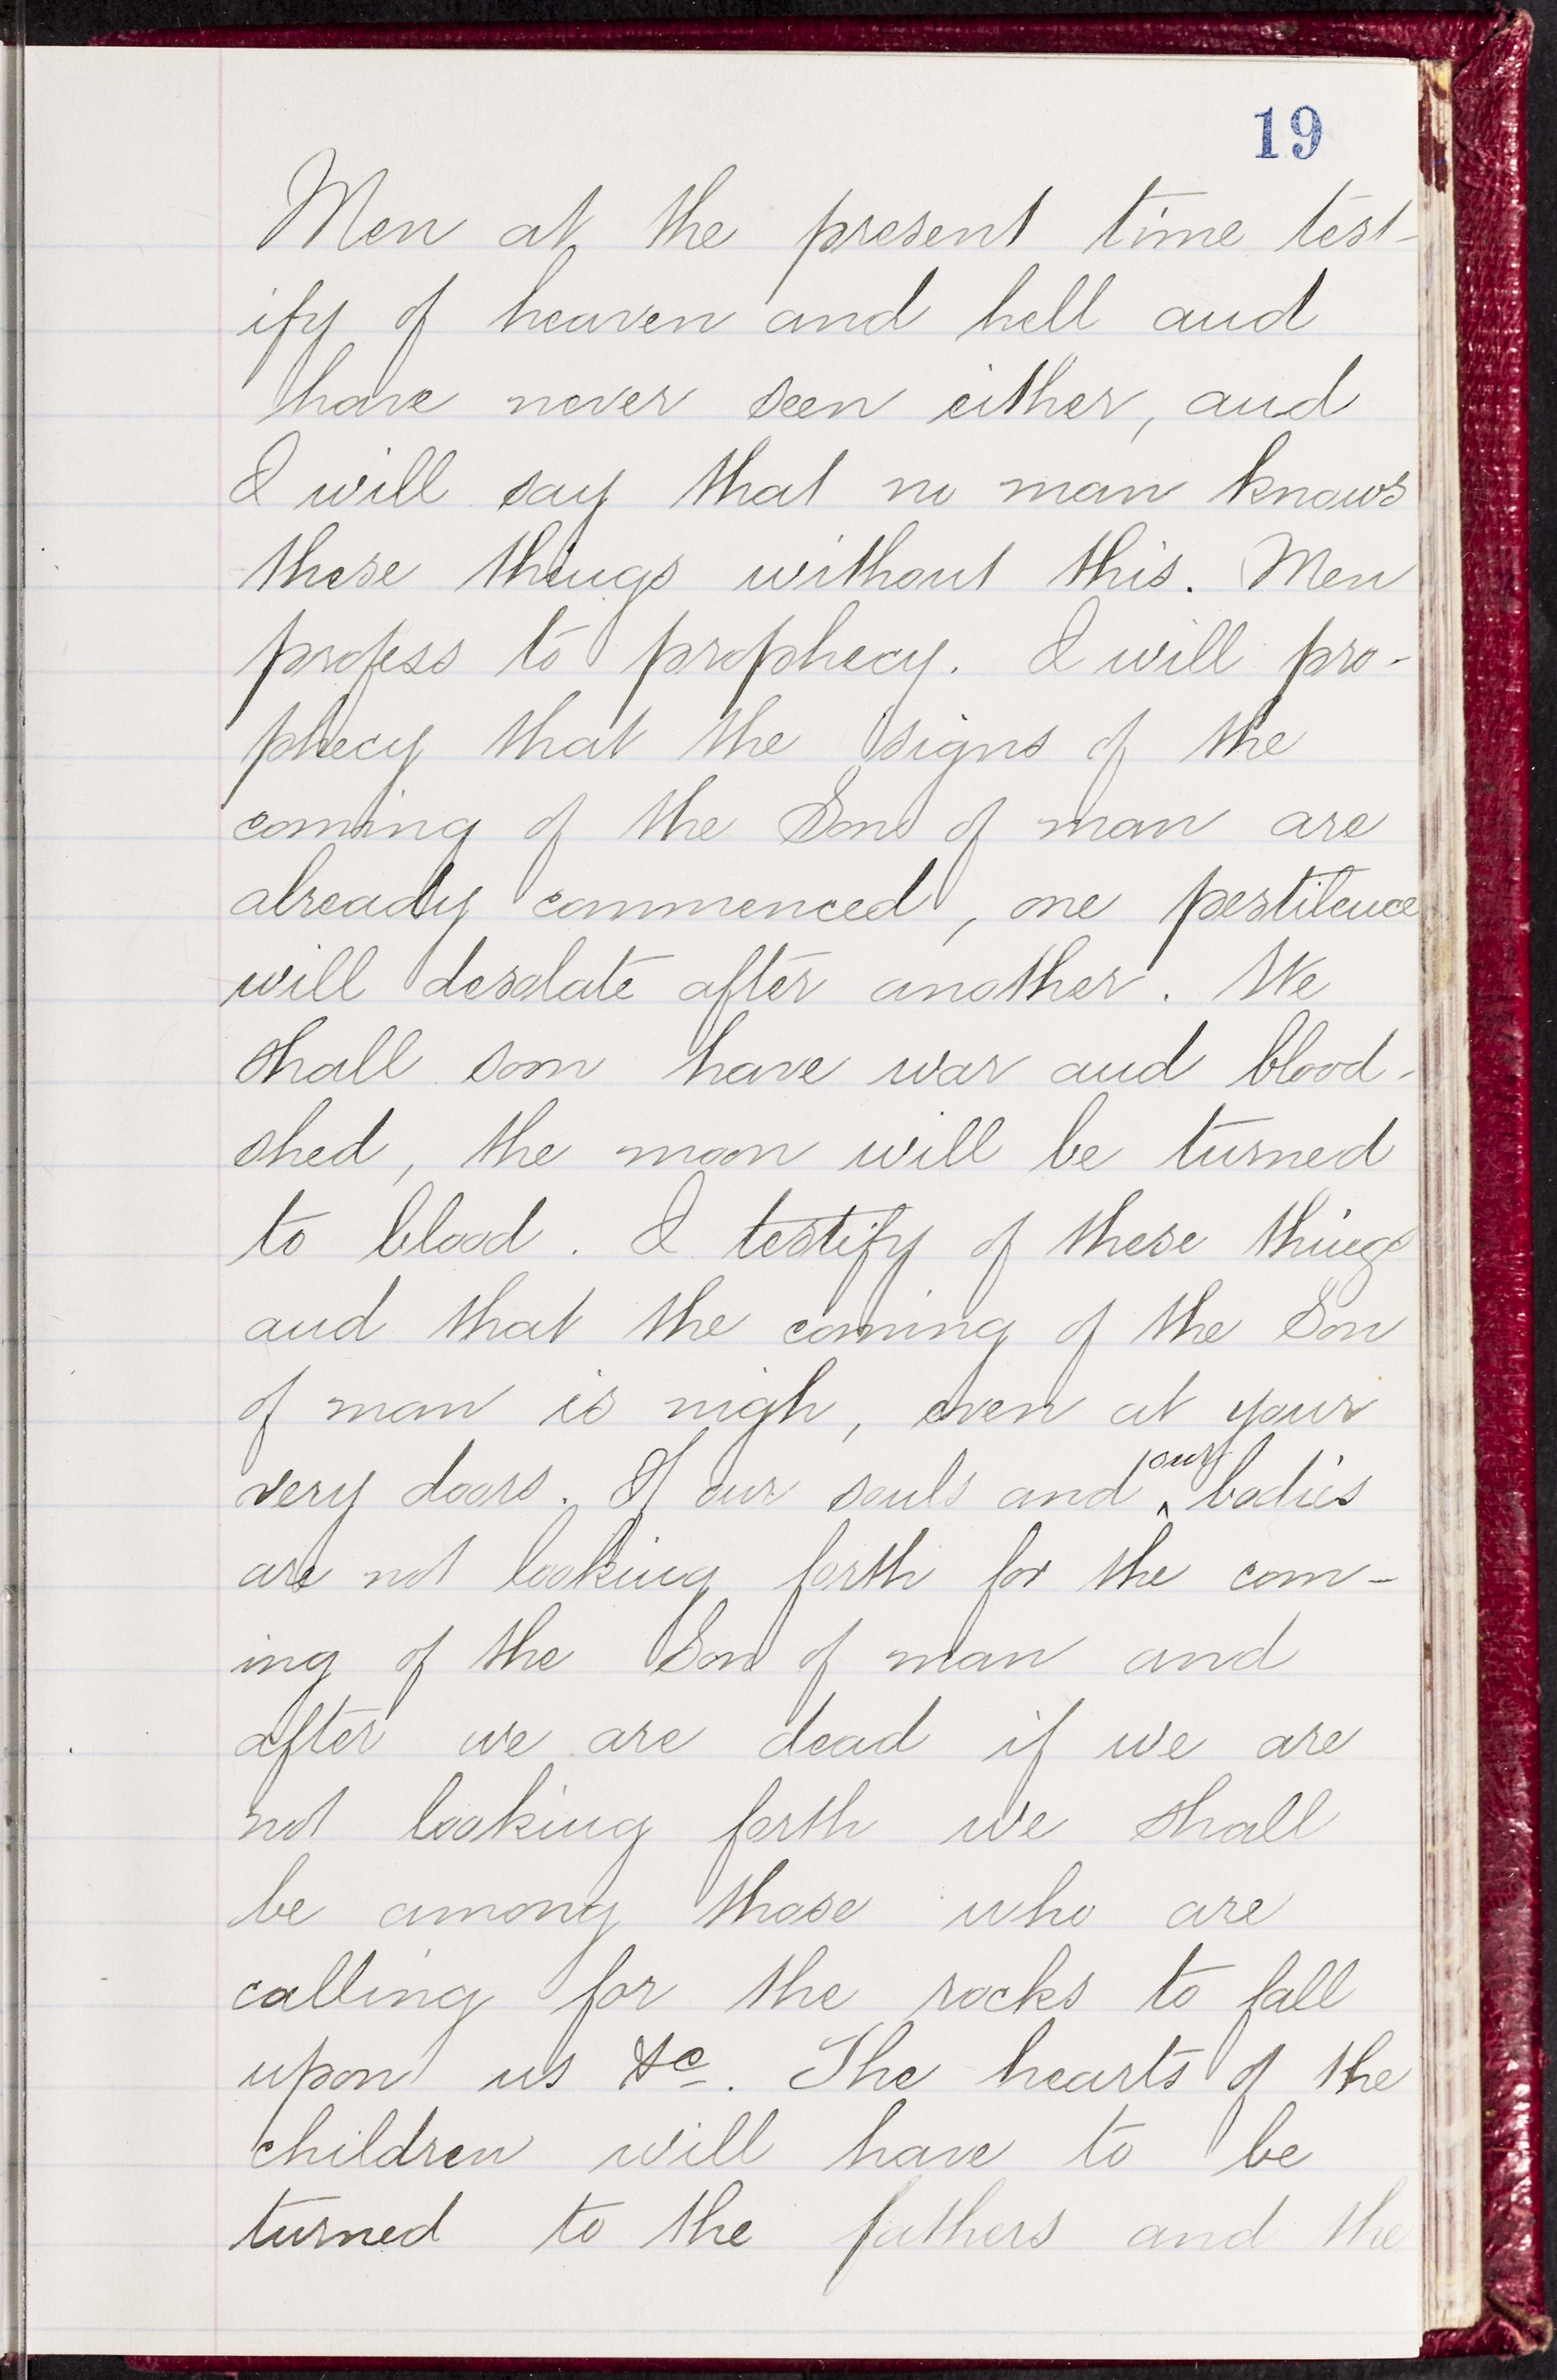 19
Men at the present time test-
ify of heaven and hell and
have never seen either, and
I will say that no man knows
these things without this. Men
profess to prophecy. I will pro-
phecy that the signs of the
coming of the Son of man are
already commenced, one pestilence
will desolate after another. We
shall soon have war and blood-
shed, the moon will be turned
to blood. I testify of these things
and that the coming of the Son
of man is nigh, even at your
very doors. If our souls and our bodies
are not looking forth for the com-
ing of the Son of man and
after we are dead if we are
not looking forth we shall
be among those who are
calling for the rocks to fall
upon us &c. The hearts of the
children will have to be
turned to the fathers and the